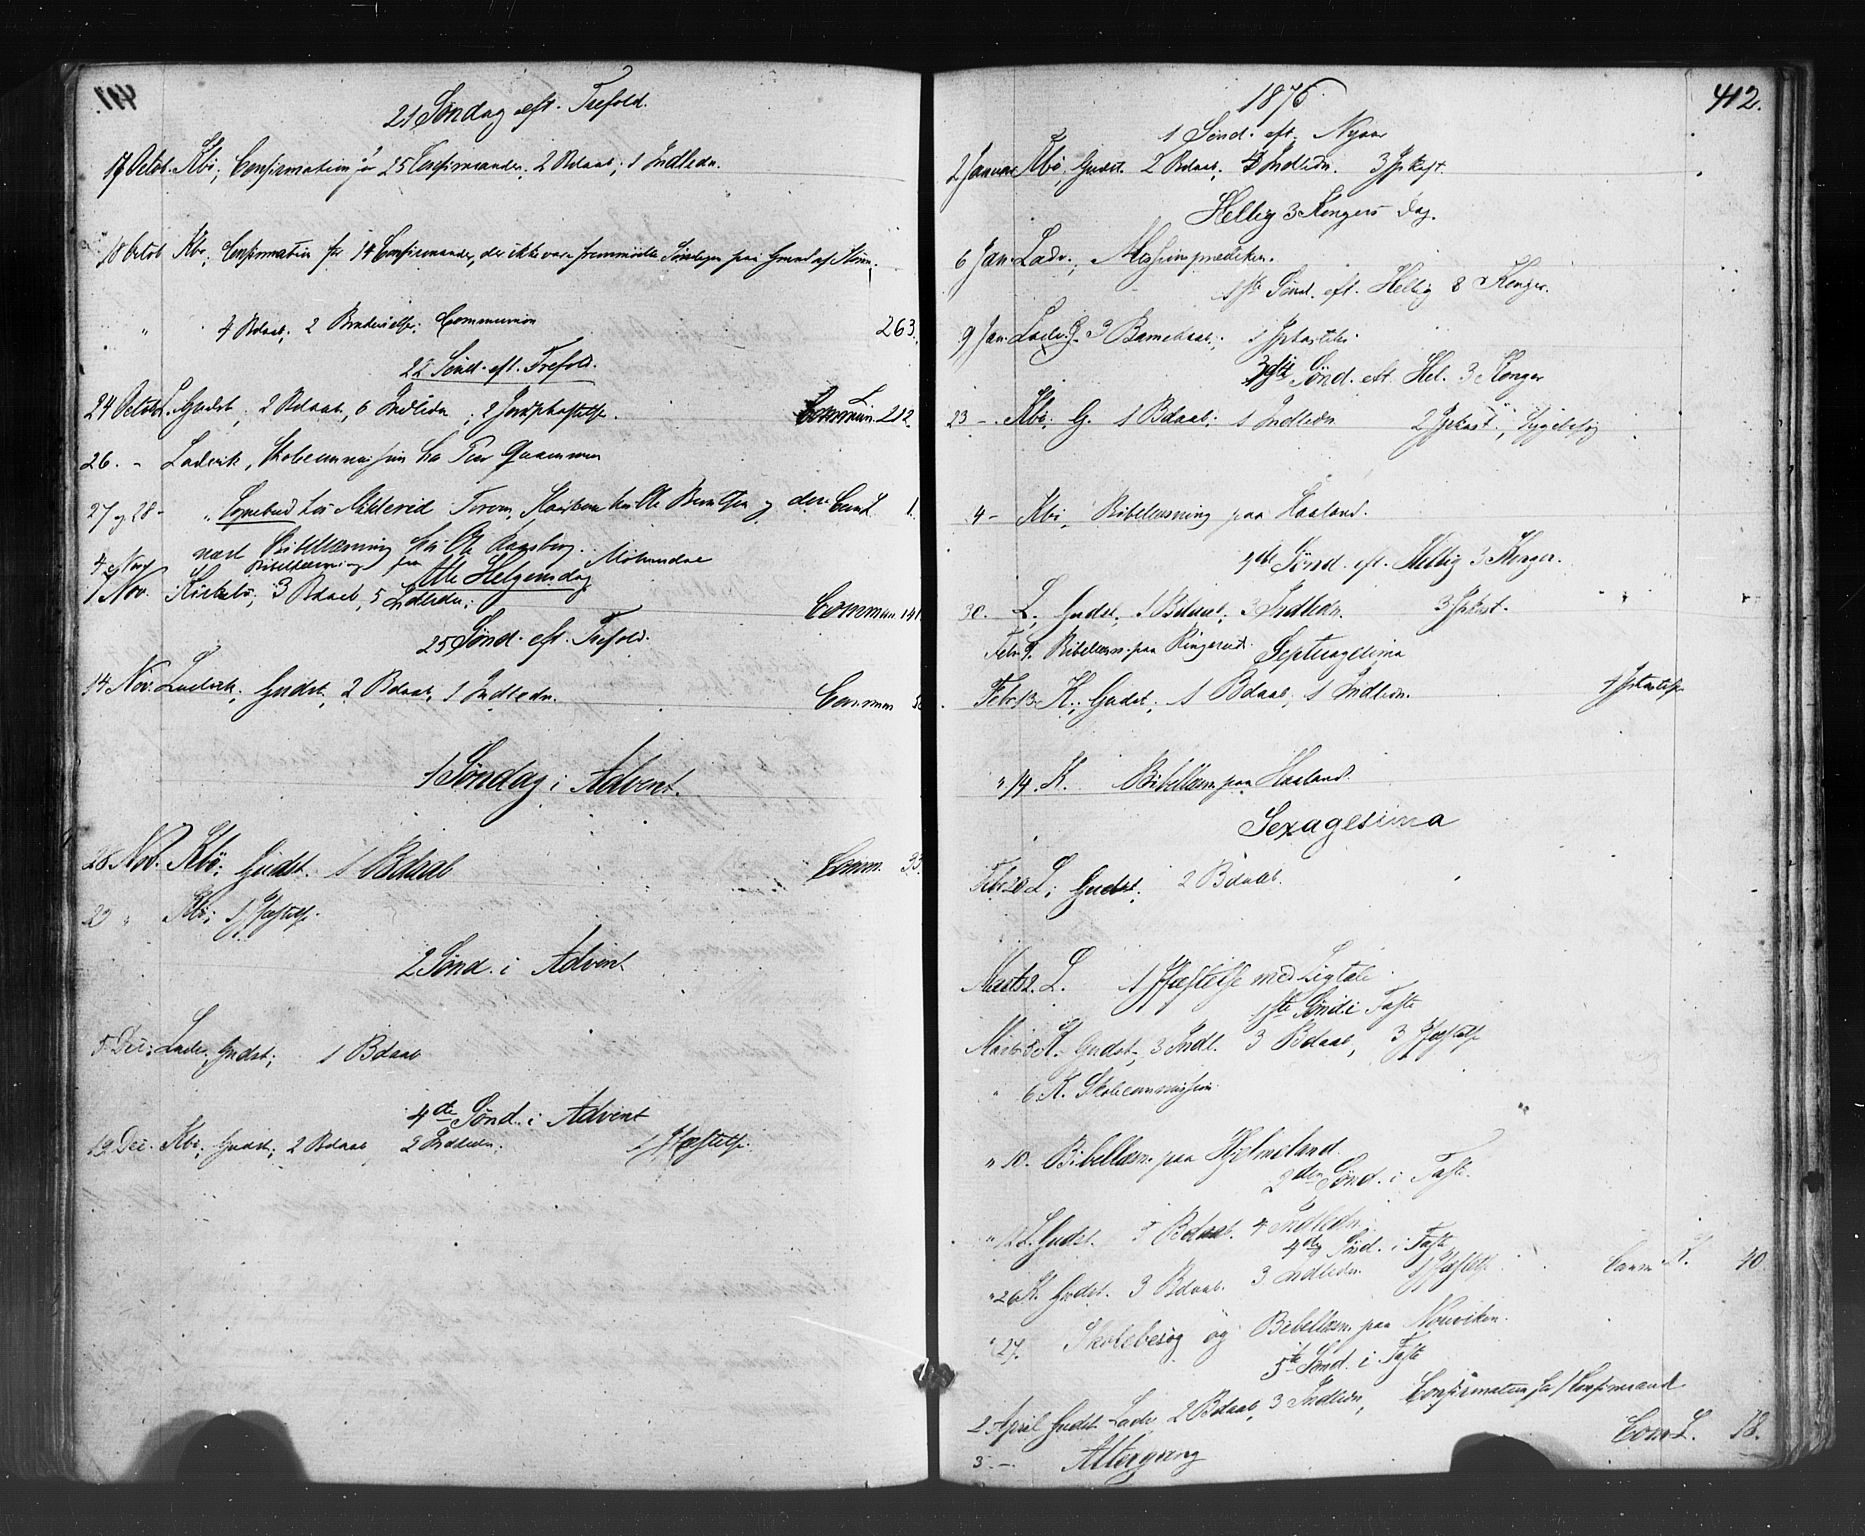 411.
21 Søndag eft. Trefold.
17 Octob. Kbø; Confirmation for 25 Confirmander; 2 Bdaab; 1 Indledn.
18 Octob Kbø; Confirmation for 14 Confirmander, der ikke vare fremmødte Søndagen paa Grund af Storm.
" 4 Bdaab; 2 Brudevielser; Communion 263.
22 Sønd. eft. Trefold.
24 Octob L. Gudst; 2 Bdaab, 6 Indledn; 2 Jordpkastelse. Commun. L. 212.
26. - Ladvik, Skolecommission hos
27 og 28 - " Sognebud hos Ole og dere 1.
næst Bibellæsning hos Ole
4 Nov Bibellæsning paa
Alle Helgensdag
7 Nov. Kirkebø; 3 Bdaab, 5 Indledn; Commun 141
25 Sønd. eft. Trefold.
14 Nov. Ladvik; Gudst, 2 Bdaab, 1 Indledn. Commun
1 Søndag i Advent.
28 Nov. Kbø; Gudst. 1 Bdaab Comm. 33
29 " Kbø; 1 Jfæstelse.
2 Sønd. i Advent
5 Dec; Ladv. Gudst; 1 Bdaab
4de Sønd. i Advent
19 Dec. Kbø; Gudst; 2 Bdaab 2 Indledn; 1 Jfæstelse.
412.
1876.
1 Sønd. eft. Nyaar
2 Januar Kbø; Gudst. 2 Bdaab; 3 Indledn. 3 Jpkast.
Hellig 3 Kongers Dag.
6 Jan. Ladv.; Missionsprædiken.
1ste Sønd. eft. Hellig 3 Konger.
9 Jan. Ladv. G. 3 Barnedaab; 1 Jpkastelse.
3die Sønd. eft. Hel. 3 Konger
23 -. Kbø; G. 1 Bdaab; 1 Indledn 2 Jpkast; Sygebesøg
4 - Kbø; Bibellæsning paa Haaland.
4de Sønd. eft. Hellig 3 Konger.
30. L; Gudst; 1 Bdaab; 3 Indledn. 3 Jpkast.
Febr 9. Bibellæsn. paa Ringereid.
Septuagesima
Febr 13 K; Gudst; 1 Bdaab, 1 Indledn. 1 Jpkastelse
" 14. K. Bibellæsn. paa Haaland.
Sexagesima
Febr 20 L; Gudst; 2 Bdaab.
Marts 2. L. 1 Jfæstelse med Ligtale
1ste Sønd. i Faste
Marts 5 K. Gudst, 3 Indl. 3 Bdaab, 3 Jfæstelse
" 6 K. Skolecommission
" 10. Bibellæsn. paa Hjelmeland.
2den Sønd. i Faste.
" 12 L. Gudst. 3 Bdaab. 4 Indledn;
4de Sønd. i Faste
" 26 K. Gudst. 3 Bdaab. 3 Indledn. 1 Jfæstelse Comm K. 40.
" 27. Skolebesøg og Bibellæsn. paa Norviken.
5te Sønd. i Faste
2 April Gudst. Ladv. 2 Bdaab, 3 Indledn, Confirmation for 1 Confirmand
Com L. 18.
3. - Altergang